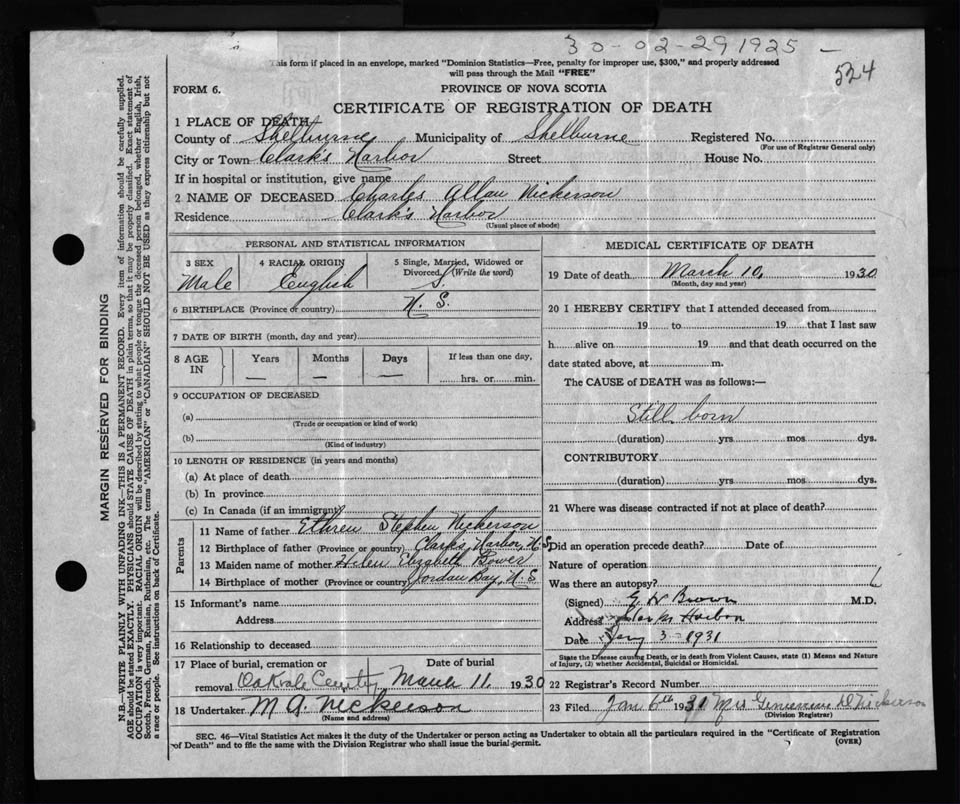 30-02-29 1925 -
524
This form if placed in an envelope, marked "Dominion Statistics—Free, penalty for improper use, $300," and properly addressed
will pass through the Mail "FREE"
FORM 6.
PROVINCE OF NOVA SCOTIA
CERTIFICATE OF REGISTRATION OF DEATH
1 PLACE OF DEATH
County of Shelburne Municipality of Shelburne Registered No.
(For use of Registrar General only)
City or Town Clark's Harbor Street House No.
If in hospital or institution, give name
2 NAME OF DECEASED Charles Allan Nickerson
Residence Clark's Harbor
(Usual place of abode)
PERSONAL AND STATISTICAL INFORMATION
3 SEX 4 RACIAL ORIGIN 5 Single, Married, Widowed or Divorced (Write the word)
Male English S.
6 BIRTHPLACE (Province or country) N. S.
7 DATE OF BIRTH (month, day and year)
8 AGE IN Years Months Days If less than one day,
— — — hrs. or min.
9 OCCUPATION OF DECEASED
(a)
(Trade or occupation or kind of work)
(b)
(Kind of industry)
10 LENGTH OF RESIDENCE (in years and months)
(a) At place of death
(b) In province
(c) In Canada (if an immigrant)
Parents
11 Name of father Ethren Stephen Nickerson
12 Birthplace of father (Province or country) Clark's Harbor, N. S.
13 Maiden name of mother Helen Elizabeth Bower
14 Birthplace of mother (Province or country) Jordan Bay, N. S.
15 Informant's name
Address
16 Relationship to deceased
17 Place of burial, cremation or removal Date of burial
March 11, 1930
18 Undertaker M A Nickerson
(Name and address)
MEDICAL CERTIFICATE OF DEATH
19 Date of death March 10, 1930
(Month, day and year)
20 I HEREBY CERTIFY that I attended deceased from
19 to 19 that I last saw
h alive on 19 and that death occurred on the
date stated above, at m.
The CAUSE of DEATH was as follows:—
Still born
(duration) yrs. mos. dys.
CONTRIBUTORY
(duration) yrs. mos. dys.
21 Where was disease contracted if not at place of death?
Did an operation precede death? Date of
Nature of operation
Was there an autopsy?
(Signed) E H Brown M.D.
Address Clarks Harbor
Date Jany 3 - 1931
State the Disease causing Death, or in death from Violent Causes, state (1) Means and Nature
of Injury, (2) whether Accidental, Suicidal or Homicidal.
22 Registrar's Record Number
23 Filed Jan 6th 1931 Mrs Nickerson
(Division Registrar)
SEC. 46—Vital Statistics Act makes it the duty of the Undertaker or person acting as Undertaker to obtain all the particulars required in the "Certificate of Registration
of Death" and to file the same with the Division Registrar who shall issue the burial permit.
(OVER)
MARGIN RESERVED FOR BINDING
N.B.—WRITE PLAINLY WITH UNFADING INK—THIS IS A PERMANENT RECORD. Every item of information should be carefully supplied.
AGE should be stated EXACTLY. PHYSICIANS should STATE CAUSE OF DEATH in plain terms, so that it may be properly classified. Exact statement of
OCCUPATION is very important. RACIAL ORIGIN will be described by stating to what people or tongue the deceased person belonged, whether English, Irish,
Scotch, French, German, Russian, Ruthenian, etc. The terms "AMERICAN" or "CANADIAN" SHOULD NOT BE USED as they express citizenship but not
a race or people. See instructions on back of Certificate.